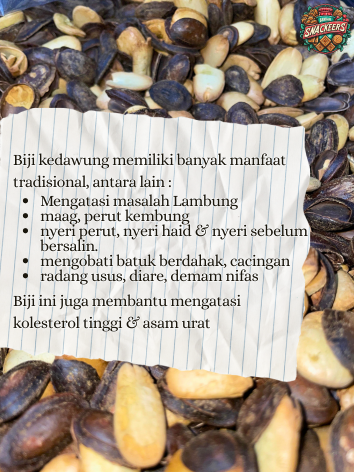 SNACKEERS
Biji kedawung memiliki banyak manfaat
tradisional, antara lain :
• Mengatasi masalah Lambung
• maag, perut kembung
• nyeri perut, nyeri haid & nyeri sebelum
bersalin.
• mengobati batuk berdahak, cacingan
• radang usus, diare, demam nifas
Biji ini juga membantu mengatasi
kolesterol tinggi & asam urat